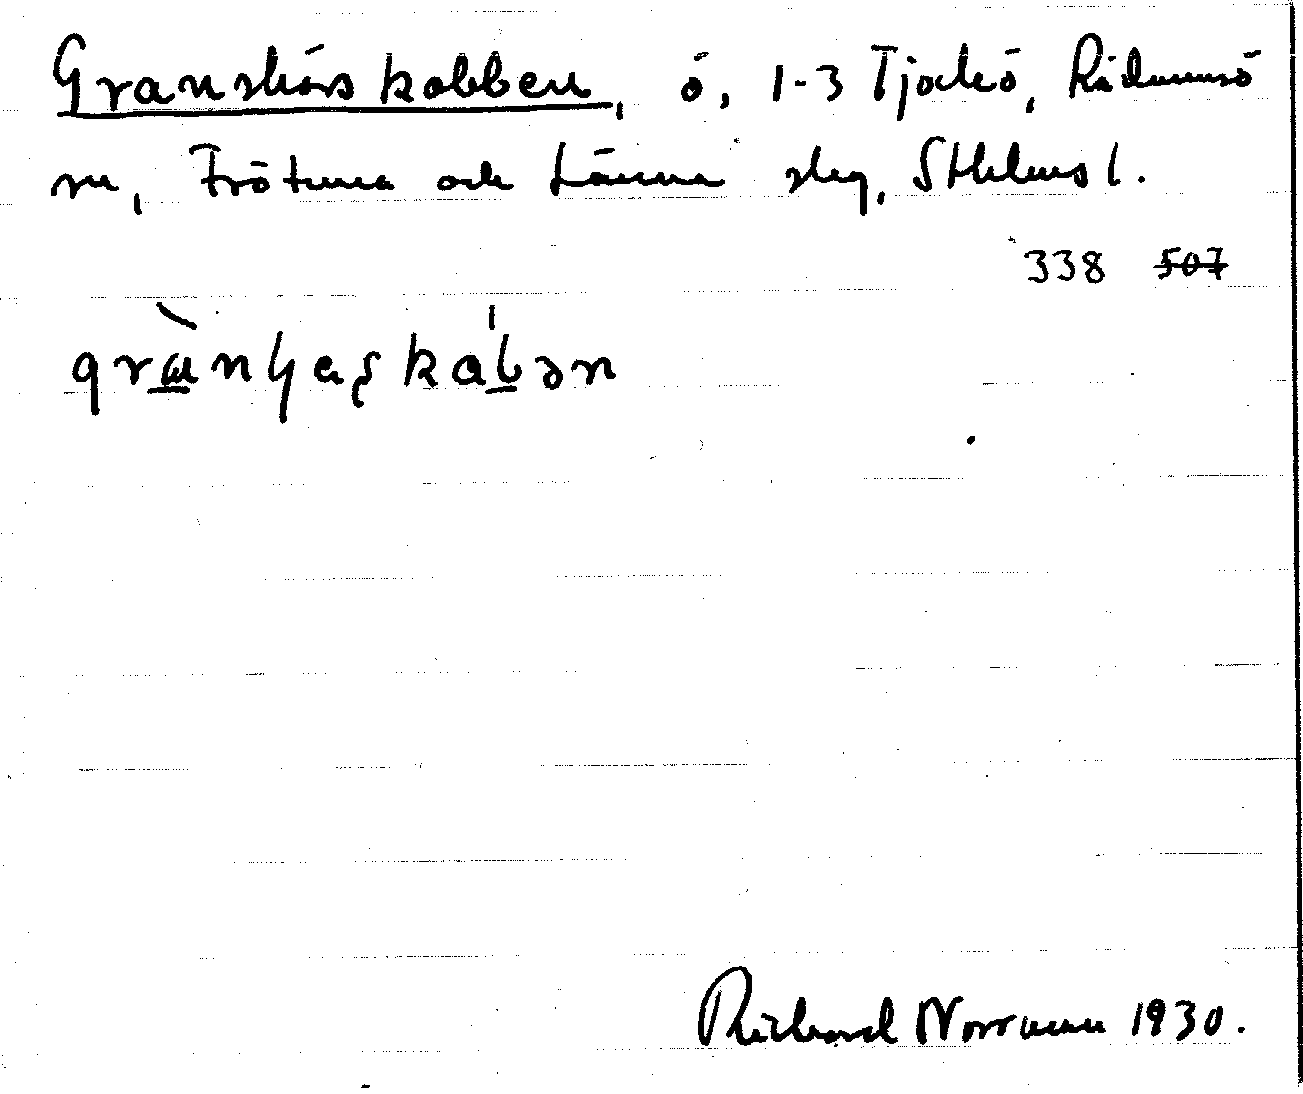 Granskärskobben, ö, 1-3 Tjockö, Rådmansö
sn, Frötuna och Länna skg, Sthlms l.
338 507
grànɧaʂkabən
Richard Norrman 1930.